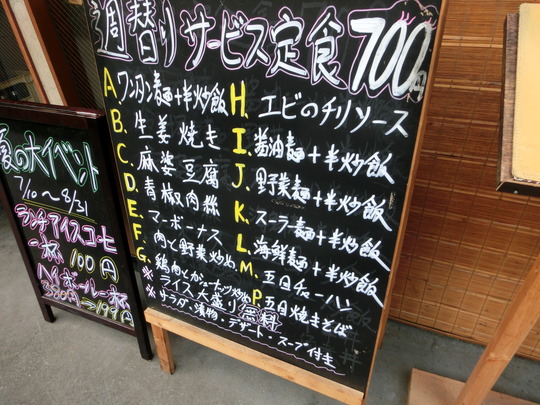 週替りサービス定食700円
A. ワンタン麺+半炒飯
B. 生姜焼き
C. 麻婆豆腐
D. 青椒肉絲
E. マーボーナス
F. 肉と野菜炒め
G. 鶏肉とカシューナッツ炒め
H. エビのチリソース
I. 醤油麺+半炒飯
J. 野菜麺+半炒飯
K. スーラー麺+半炒飯
L. 海鮮麺+半炒飯
M. 五目チャーハン
P. 五目焼きそば
※ライス大盛り無料
※サラダ・漬物・デザート・スープ付き
夏の大イベント
7/10～8/31
ランチアイスコーヒー
一杯100円
ハイボール一杯
380円→199円